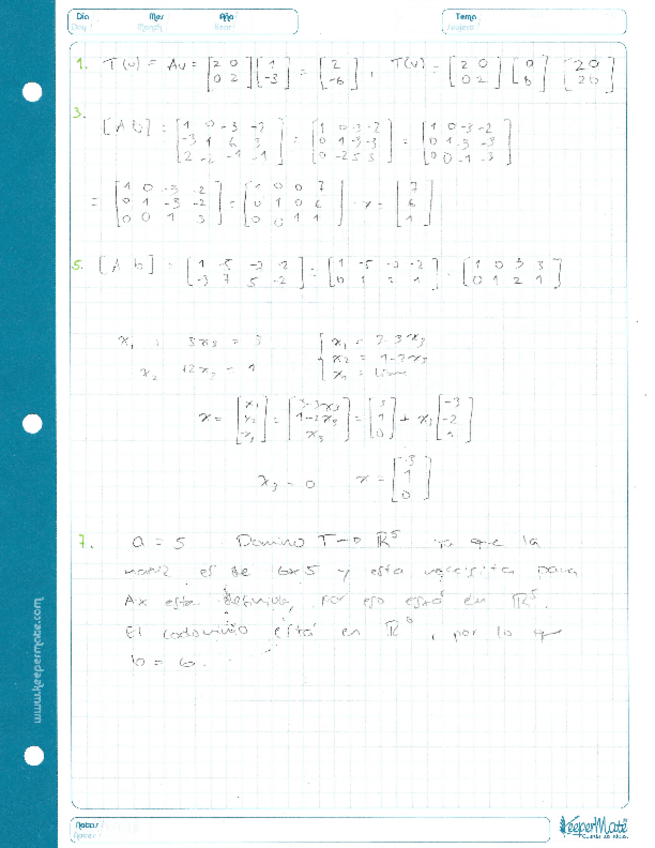 Día Mes Año Tema
Day Month Year Subject
1. T(u) = Au = [2 0; 0 2] [1; -3] = [2; -6], T(v) = [2 0; 0 2] [a; b] [2a; 2b]
3.
[A b] = [1 0 -3 -2; -3 1 6 3; 2 -2 -1 -1] = [1 0 -3 -2; 0 1 -3 -3; 0 -2 5 3] = [1 0 -3 -2; 0 1 -3 -3; 0 0 -1 -3]
= [1 0 -3 -2; 0 1 -3 -2; 0 0 1 3] = [1 0 0 7; 0 1 0 6; 0 0 1 1] x = [7; 6; 1]
5. [A b] = [1 -5 -7 -2; -3 7 5 -2] = [1 -5 -7 -2; 0 1 2 1] [1 0 3 3; 0 1 2 1]
x₁ 3x₃ = 3
x₂ +2x₃ = 1
x = [x₁; x₂; x₃] = [3-3x₃; 1-2x₃; x₃] = [3; 1; 0] + x₃ [-3; -2; 1]
x₃ = 0 x = [3; 1; 0]
7. a = 5 Dominio T→ ℝ⁵ ya que la
matriz es de 6x5 y esta necesita para
Ax este definida, por eso está en ℝ⁵.
El codominio está en ℝ⁶, por lo q
b = 6.
www.keepermate.com
Notas
Notes
KeeperMate